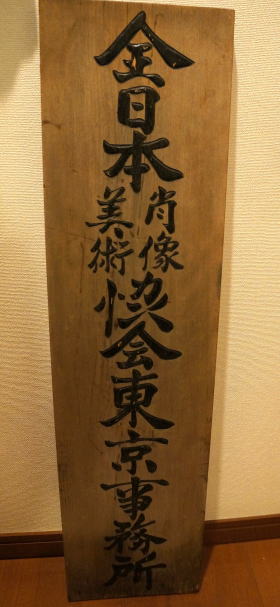 全日本
肖像
美術
恊会東京事務所